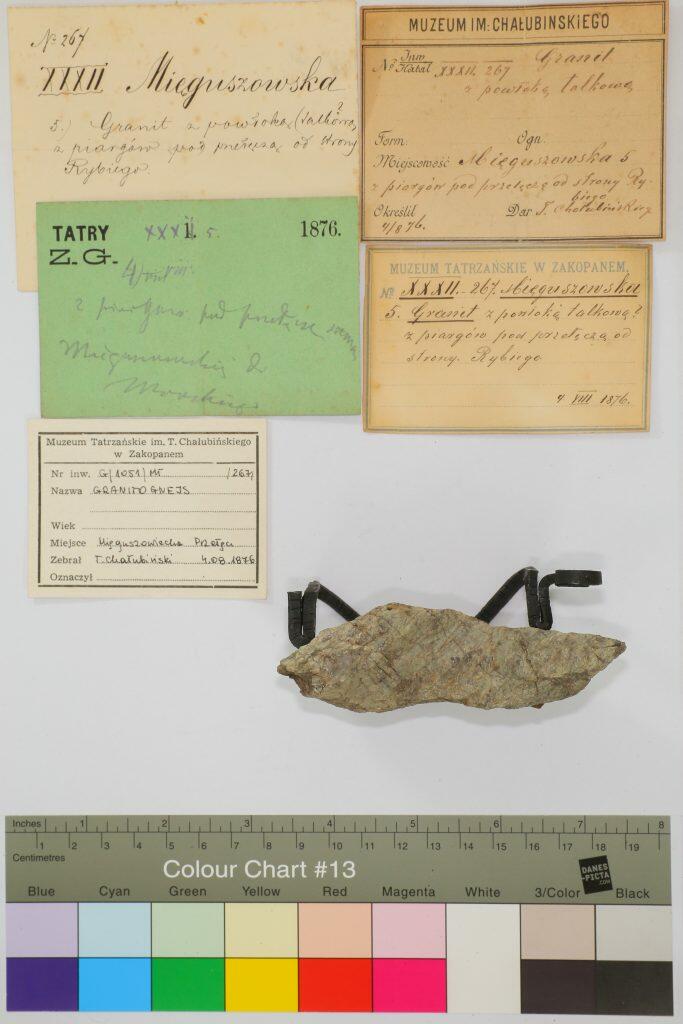 No 267
XXXII Mięguszowska
5.) Granit z powłoką (talkową?)
z piargów pod przełęczą od strony
Rybiego.
MUZEUM IM: CHAŁUBINSKIEGO
No Inw/Katal XXXII. 267 Granit
z powłoką talkową
Form: Ogn.
Miejscowość Mięguszowska 5
z piargów pod przełęczą od strony Ry-
biego
Określił Dar T. Chałubińskiego
4/8 76.
TATRY XXXII. 5. 1876.
Z. G.
Granit
z piargów pod przełęczą
Mięguszowską
Morskiego
MUZEUM TATRZAŃSKIE W ZAKOPANEM.
No XXXII.-267. Mięguszowska
5. Granit z powłoką talkową?
z piargów pod przełęczą od
strony Rybiego
4 VIII 1876.
Muzeum Tatrzańskie im. T. Chałubińskiego
w Zakopanem
Nr inw. G/1051/MT /267/
Nazwa GRANITOGNEJS
Wiek
Miejsce Mięguszowiecka Przełęcz
Zebrał T. Chałubiński 4.08.1876
Oznaczył
Inches 1 2 3 4 5 6 7 8
1 2 3 4 5 6 7 8 9 10 11 12 13 14 15 16 17 18 19
Centimetres
Colour Chart #13
DANES
-PICTA
.COM
Blue Cyan Green Yellow Red Magenta White 3/Color Black